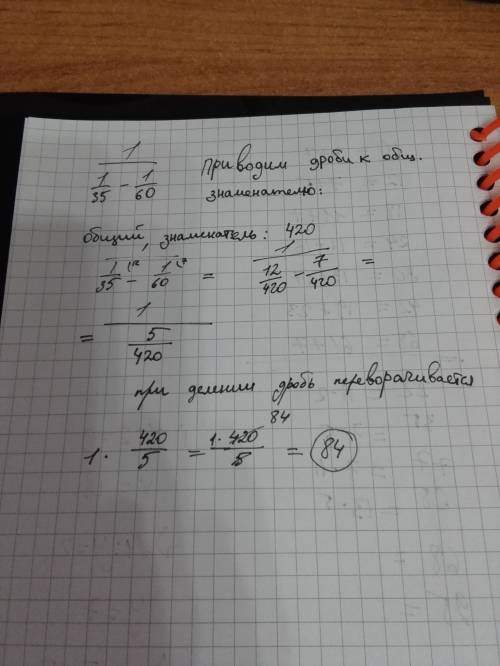 1 / (1/35 − 1/60) приводим дроби к общ.
знаменателю:
общий знаменатель: 420
1/35 (12 − 1/60 (7 = 1 / (12/420 − 7/420) =
= 1 / (5/420)
при делении дробь переворачивается
1 · 420/5 = 1·420/5 84 = 84